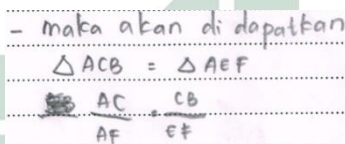 - maka akan di dapatkan
△ ACB = △ AEF
AC/AF = CB/EF